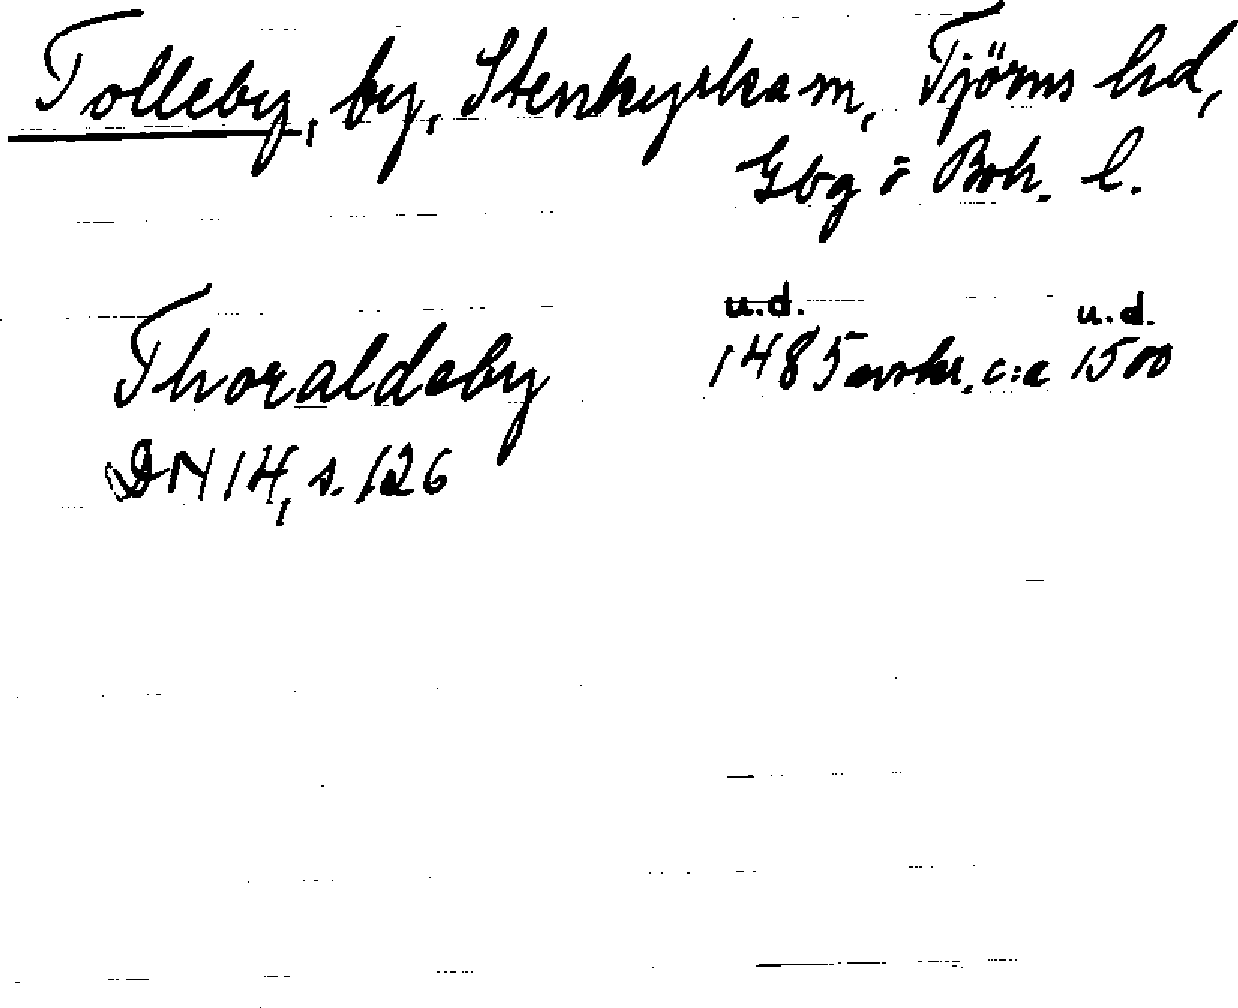 Tolleby, by, Stenkyrka sn, Tjörns hd,
Gbg o Boh. l.
u.d. u.d.
Thoraldeby 1485 avskr. c:a 1500
DN 14, s. 126